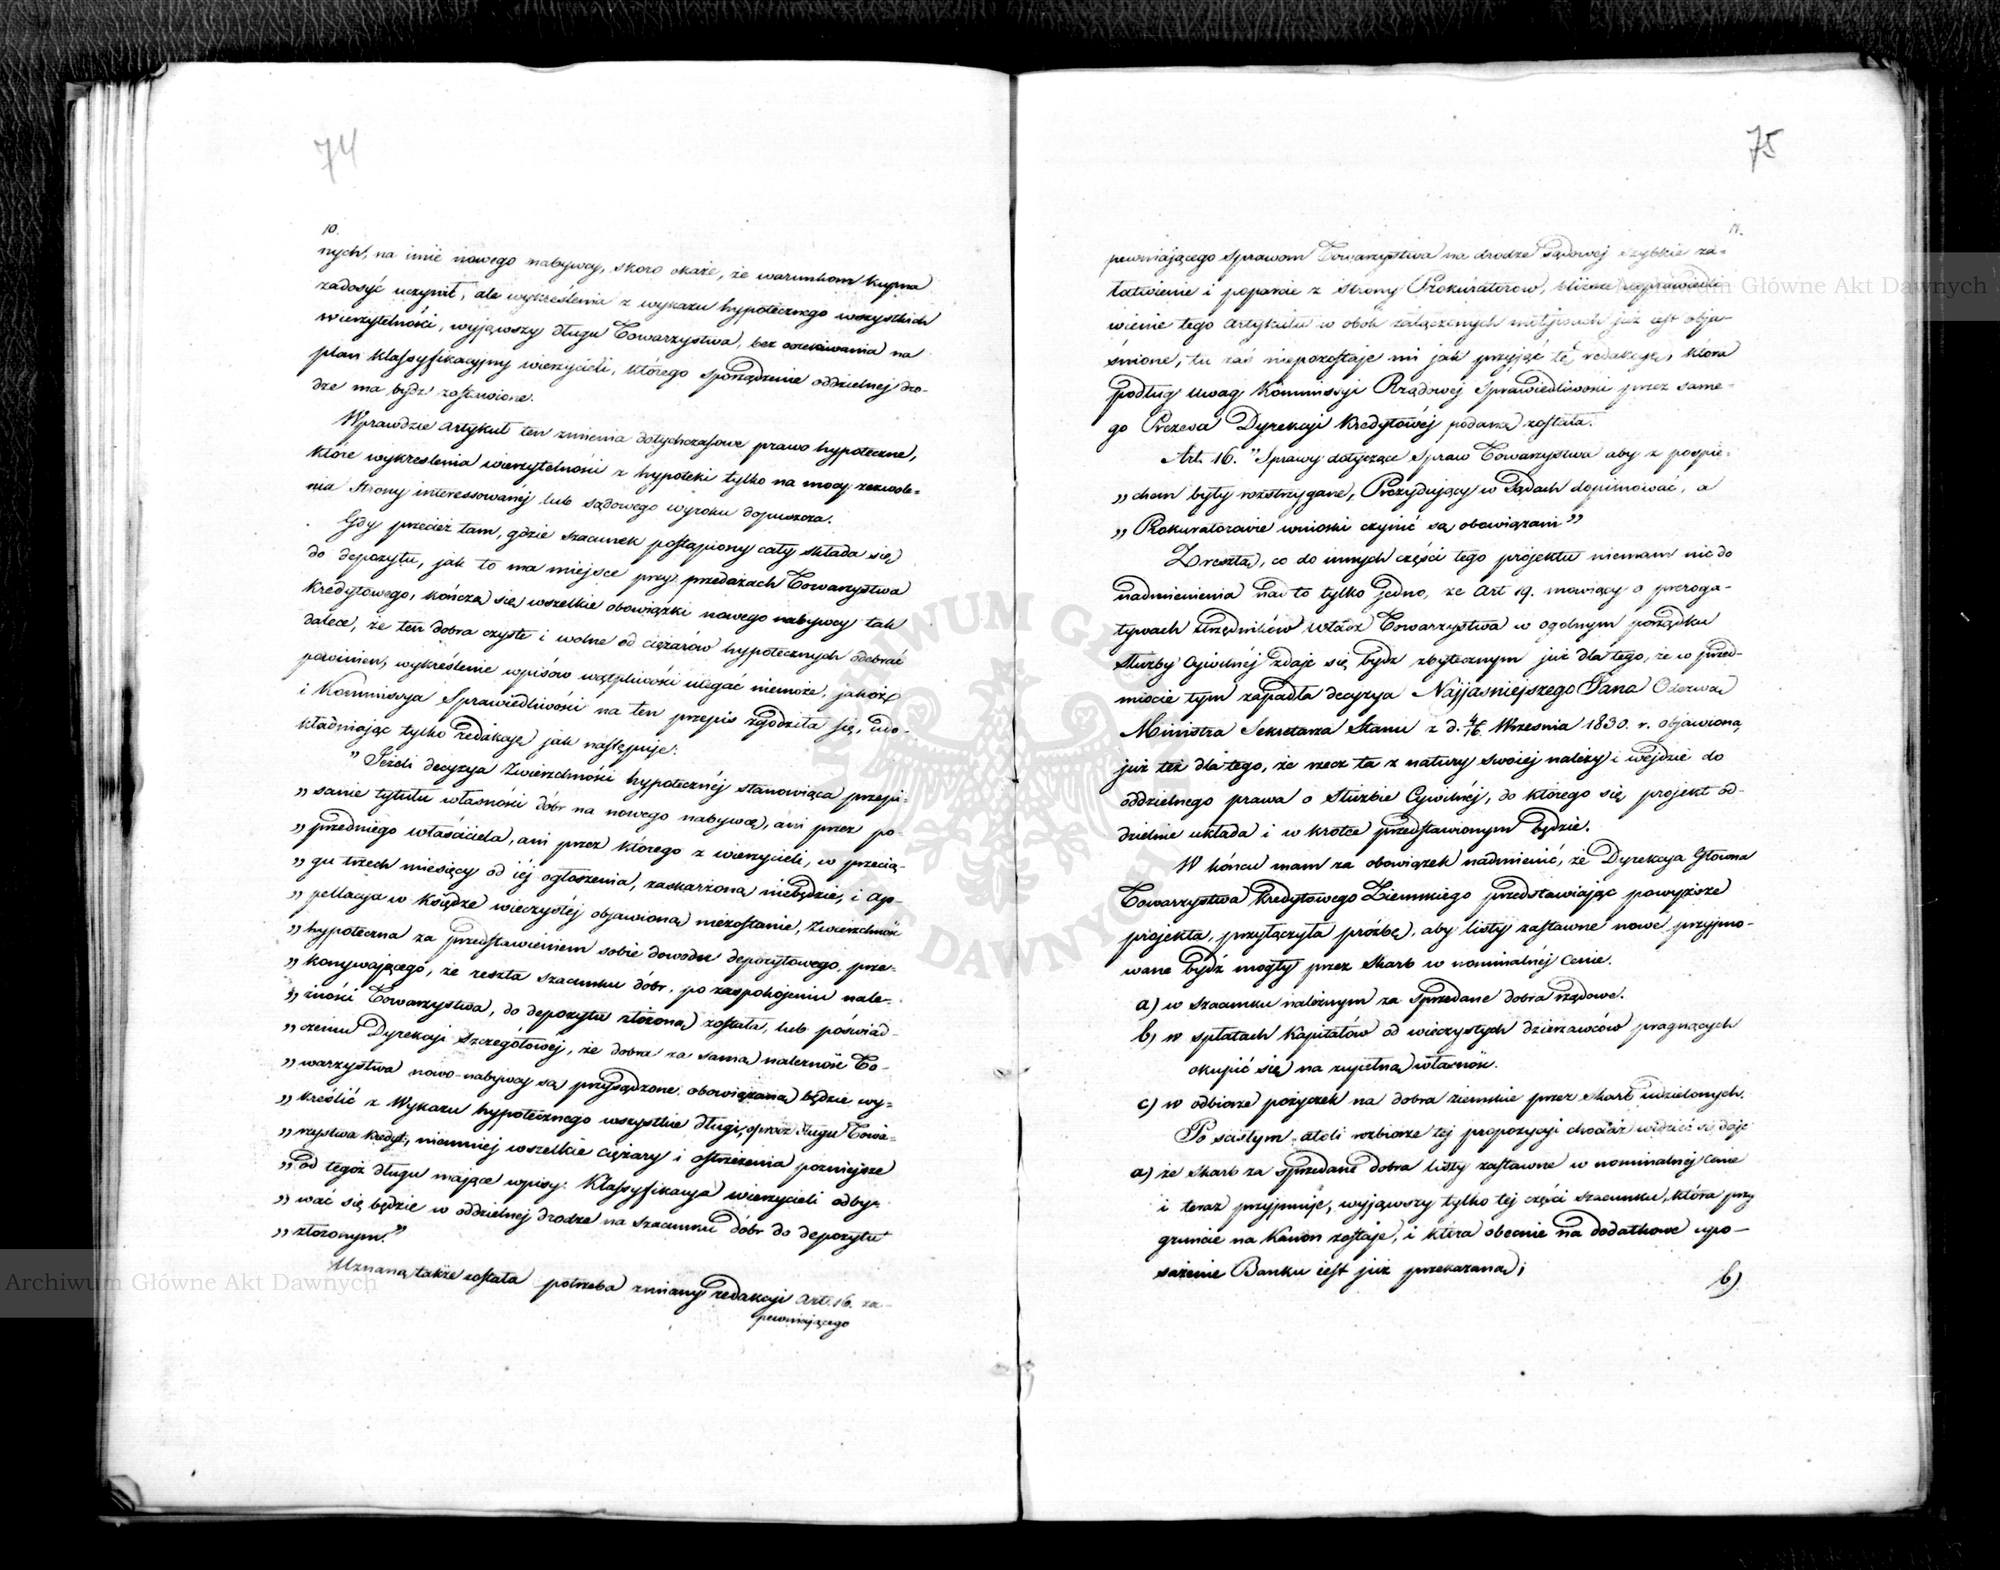 74
10.
nych, na imię nowego nabywcy, skoro okaże, że warunkom kupna
zadosyć uczynił, ale wykreślenia z wykazu hypotecznego wszystkich
wierzytelności, wyjąwszy długu Towarzystwa, bez oczekiwania na
plan klassyfikacyjny wierzycieli, którego sporządzenie oddzielnej dro-
dze ma bydź zostawione.
Wprawdzie artykuł ten zmienia dotychczasowe prawo hypoteczne,
które wykreślenia wierzytelności z hypoteki tylko na mocy zezwole-
nia Strony interessowanej lub sądowego wyroku dopuszcza.
Gdy przecież tam, gdzie szacunek postąpiony cały składa się
do depozytu, jak to ma miejsce przy przedażach Towarzystwa
Kredytowego, kończą się wszelkie obowiązki nowego nabywcy tak
dalece, że ten dobra czyste i wolne od ciężarów hypotecznych odebrać
powinien, wykreślenie wpisów wątpliwości ulegać niemoże, jakoż
i Kommissya Sprawiedliwości na ten przepis zgodziła się, udo-
kładniając tylko redakcyę jak następuje:
" Jeżeli decyzya Zwierzchności hypotecznéj stanowiąca przepi-
„ sanie tytułu własności dóbr na nowego nabywcę, ani przez po-
„ przedniego właściciela, ani przez którego z wierzycieli, w przecią-
„ gu trzech miesięcy od iéj ogłoszenia, zaskarżoną niebędzie, i ap-
„ pellacya w Księdze wieczystéj objawioną niezostanie, Zwierzchność
„ hypoteczna za przedstawieniem sobie dowodu depozytowego, prze-
„ konywającego, że reszta szacunku dóbr, po zaspokojeniu nale-
„ żności Towarzystwa, do depozytu złożoną została, lub poświad-
„ czeniu Dyrekcyi Szczegółowéj, że dobra za samą należność To-
„ warzystwa nowo-nabywcy są przysądzone, obowiązaną będzie wy-
„ kreślić z Wykazu hypotecznego wszystkie długi, oprócz długu Towa-
„ rzystwa Kredyt., niemniej wszelkie ciężary i ostrzeżenia poźniejsze
„ od tegoż długu mające wpisy. Klassyfikacya wierzycieli odby-
„ wać się będzie w oddzielnej drodze na szacunku dóbr do depozytu
„ złożonym."
Uznaną także została potrzeba zmiany redakcyi Art. 16. za-
pewniającego
75
11.
pewniającego sprawom Towarzystwa na drodze sądowéj szybkie za-
łatwienie i poparcie z strony Prokuratorów, bliższe usprawiedli-
wienie tego artykułu w obok załączonych motywach już iest obja-
śnione, tu zaś niepozostaje mi jak przyjąć tę redakcyę, która
podług uwag Kommissyi Rządowéj Sprawiedliwości przez same-
go Prezesa Dyrekcyi Kredytowéj podana została.
Art. 16. "Sprawy dotyczące Spraw Towarzystwa aby z pospie-
„ chem były rozstrzygane, Prezydujący w Sądach dopilnować, a
„ Prokuratorowie wnioski czynić są obowiązani"
Zresztą, co do innych części tego projektu niemam nic do
nadmienienia nad to tylko jedno, że Art 19. mówiący o preroga-
tywach Urzędników władz Towarzystwa w ogólnym porządku
służby cywilnéj zdaje się bydź zbytecznym już dla tego, że w przed-
miocie tym zapadła decyzya Najjaśniejszego Pana Odezwą
Ministra Sekretarza Stanu z d. 4/16 Września 1830. r. objawiona,
już też dla tego, że rzecz ta z natury swoiej należy i wejdzie do
oddzielnego prawa o Służbie Cywilnéj, do którego się projekt od-
dzielnie układa i w krótce przedstawionym będzie.
W końcu mam za obowiązek nadmienić, że Dyrekcya Główna
Towarzystwa Kredytowego Ziemskiego przedstawiając powyższe
projekta, przyłączyła prośbę, aby listy zastawne nowe, przyjmo-
wane bydź mogły przez Skarb w nominalnéj Cenie.
a) w szacunku należnym za Sprzedane dobra rządowe.
b) w spłatach Kapitałów od wieczystych dzierżawców pragnących
okupić się na zupełną własność.
c) w odbiorze pożyczek na dobra ziemskie przez Skarb udzielonych.
Po ścisłym atoli rozbiorze tej propozycyi chociaż widzieć się daje
a) że Skarb za sprzedane dobra listy zastawne w nominalnéj Cenie
i teraz przyjmuje, wyjąwszy tylko tej części szacunku, która przy
gruncie na Kanon zostaje, i która obecnie na dodatkowe upo-
sażenie Banku iest już przekazana;
b)
Archiwum Główne Akt Dawnych
Archiwum Główne Akt Dawnych
ARCHIWUM GŁÓWNE AKT DAWNYCH